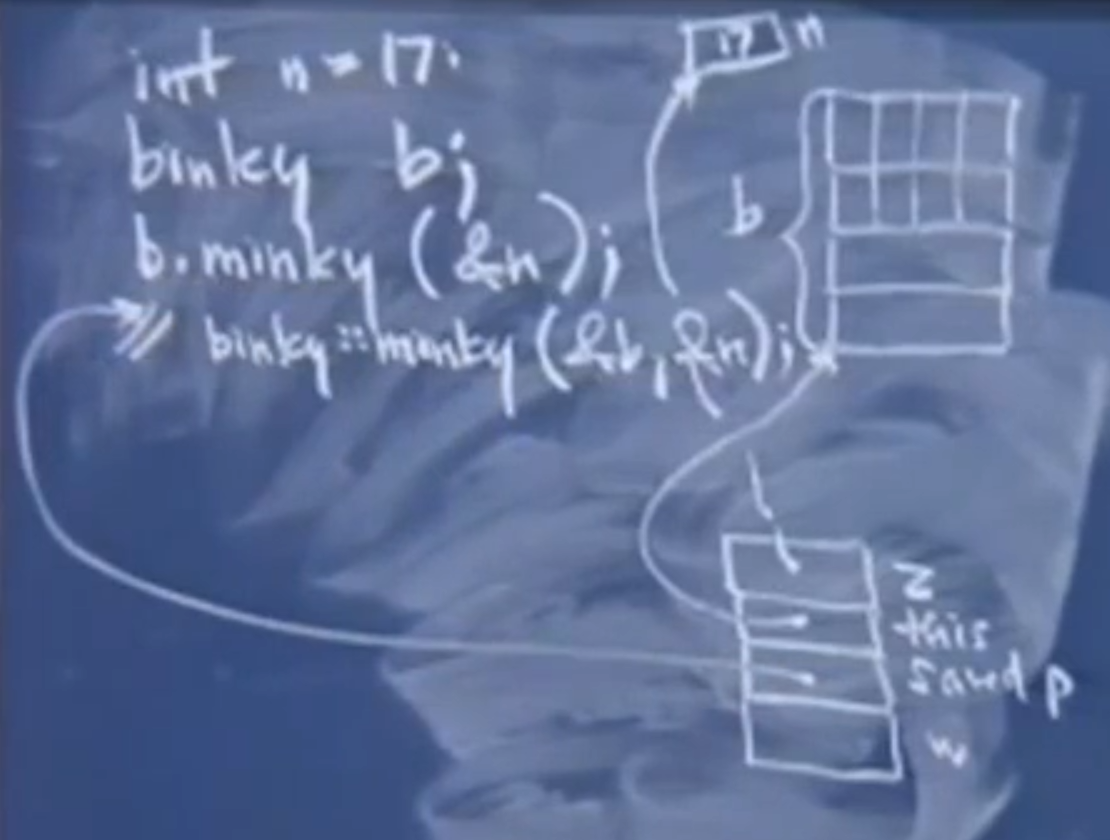 int n = 17;
17 n
binky b;
b
b.minky (&n);
// binky::minky (&b, &n);
z
this
saved p
w